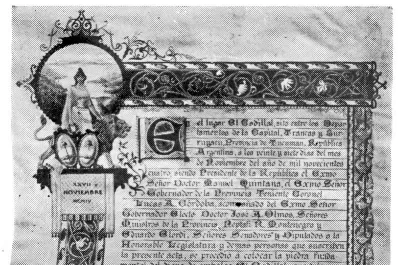 XXVII
NOVIEMBRE
MCMIV
En el lugar El Cadillal, sito entre los Depar-
tamentos de la Capital, Trancas y Bur-
ruyacu, Provincia de Tucuman, República
Argentina, a los veinte y siete dias del mes
de Noviembre del año de mil novecientos
cuatro, siendo Presidente de la República el Exmo
Señor Doctor Manuel Quintana, el Exmo Señor
Gobernador de la Provincia Teniente Coronel
Lucas A. Córdoba, acompañado del Exmo Señor
Gobernador Electo Doctor José A. Olmos, Señores
Ministros de la Provincia, Neptalí R. Montenegro y
Eduardo Clerdi, Señores Senadores y Diputados a la
Honorable Legislatura y demas personas que suscriben
la presente acta, se procedió a colocar la piedra funda